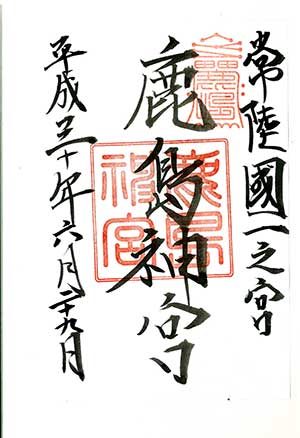 常陸國一之宮
鹿島神宮
鹿島神宮
平成三十年六月二十九日